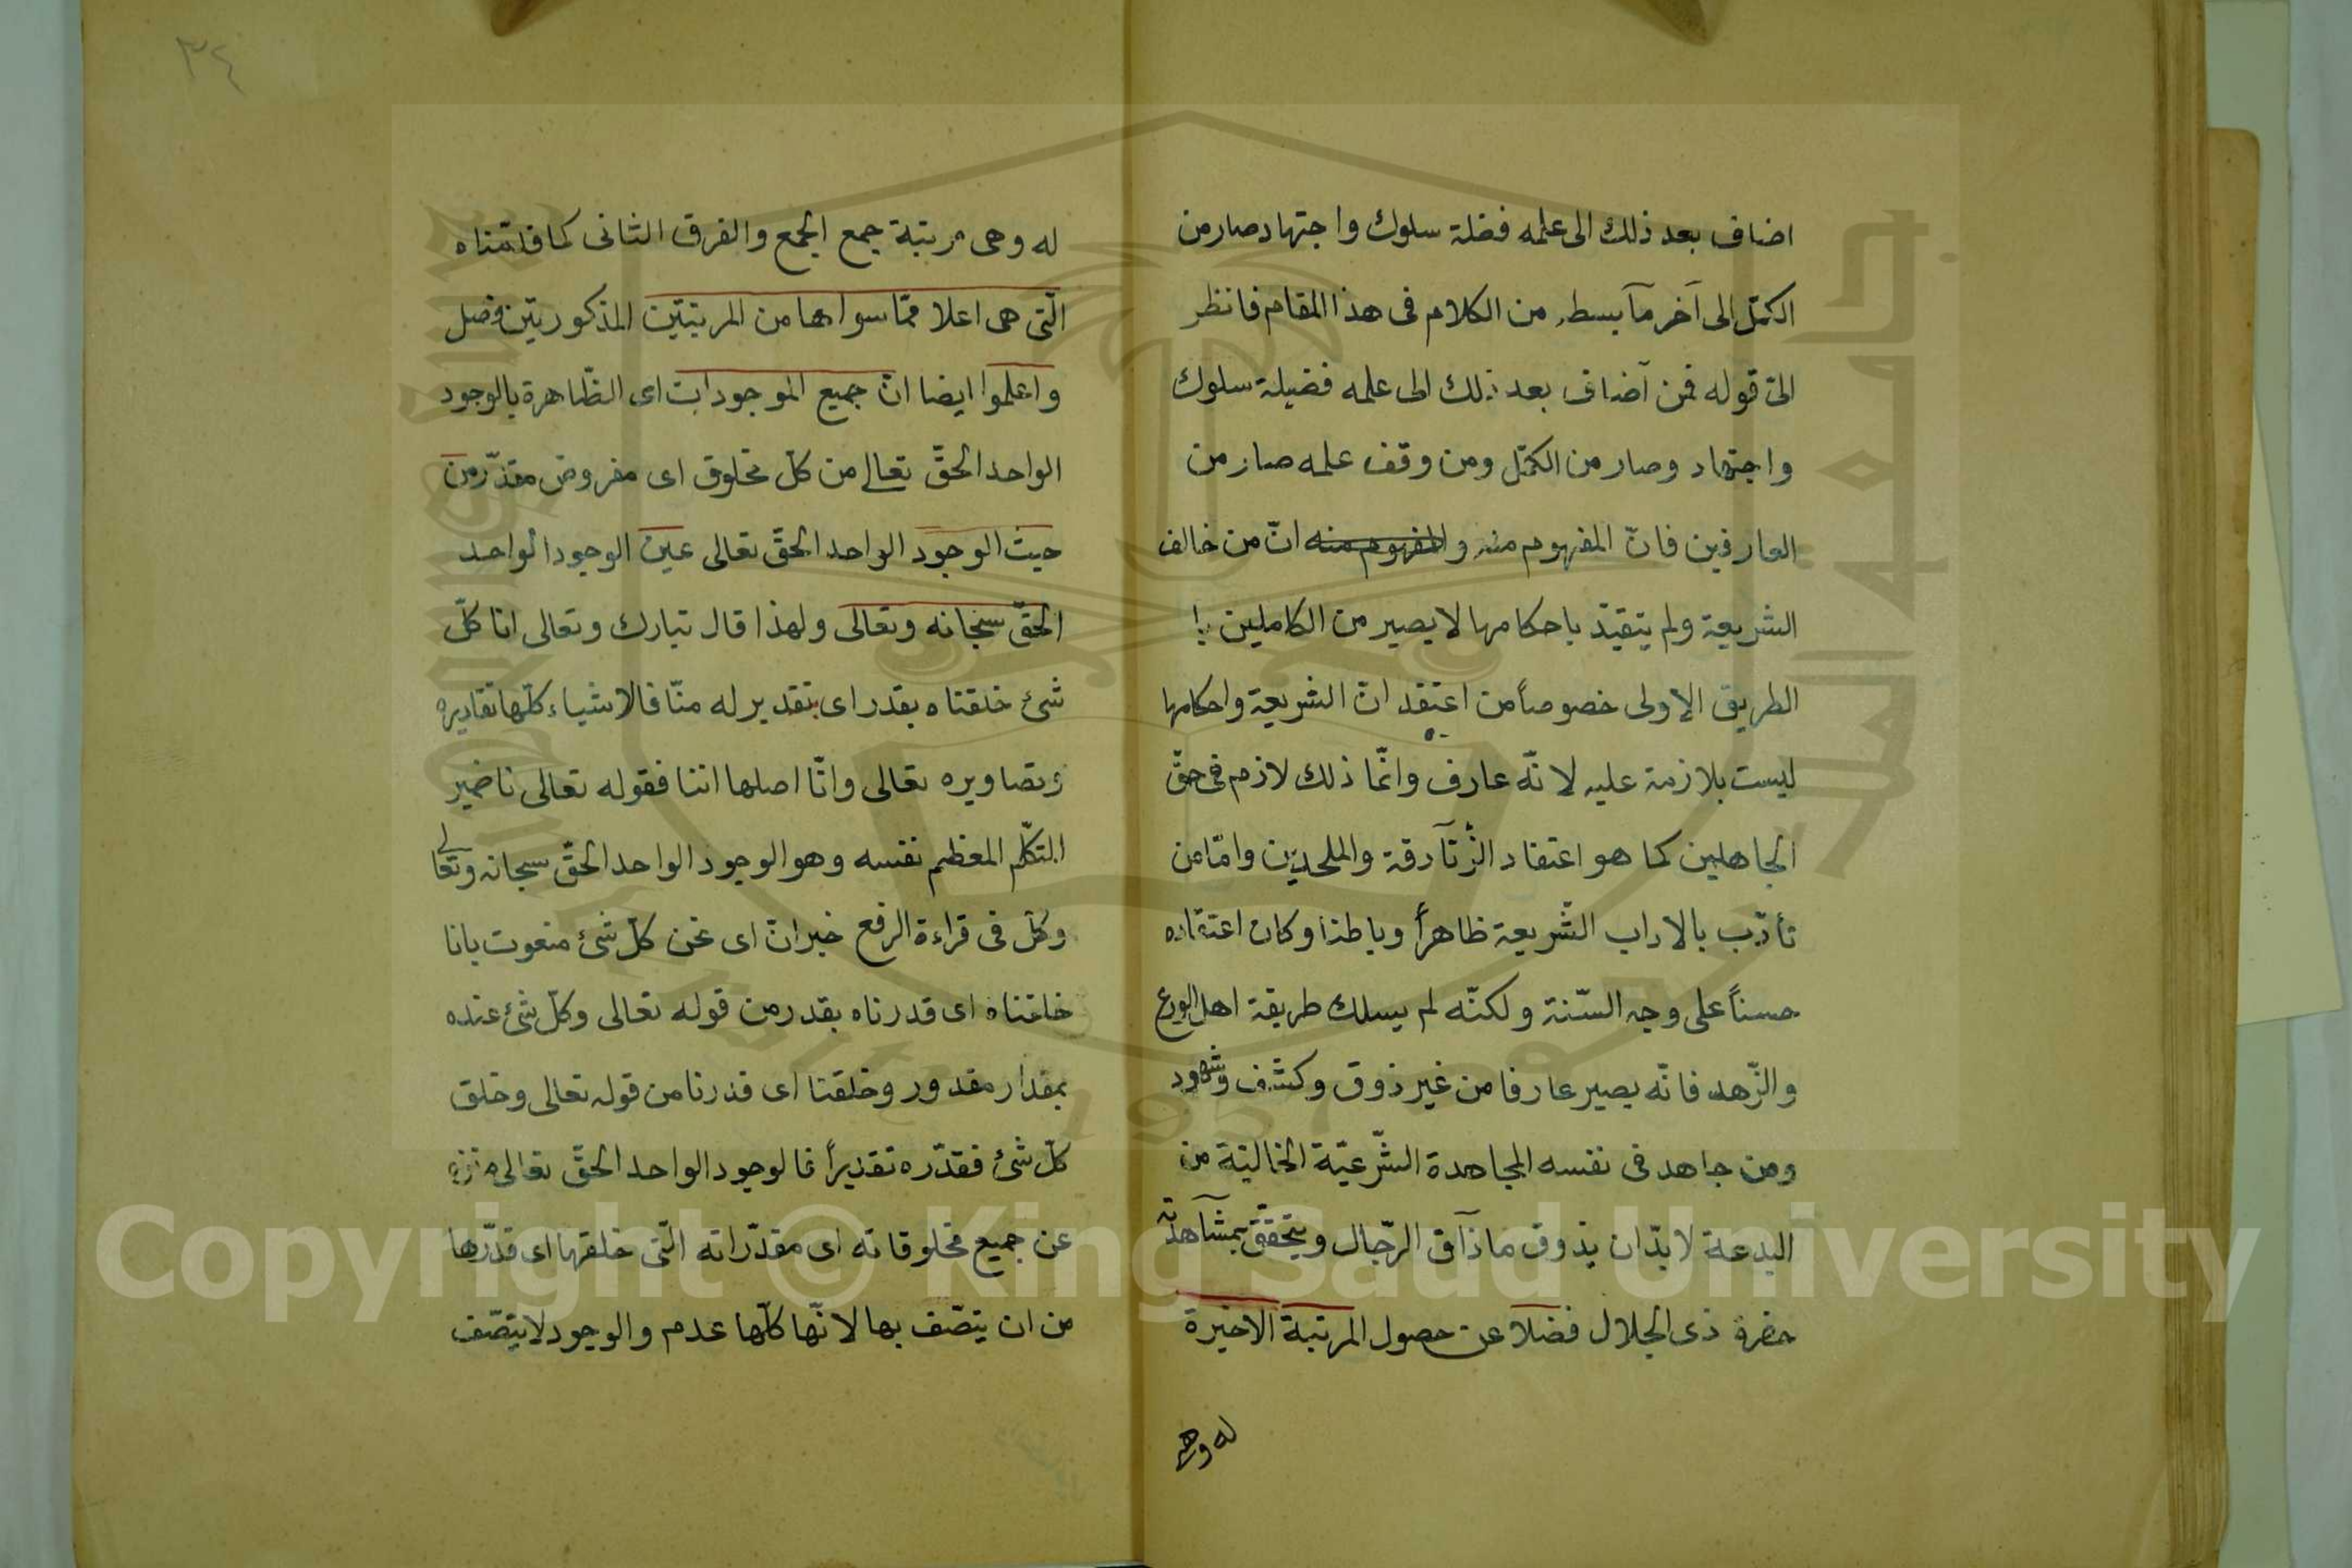 اضاف بعد ذلك الى علمه فضلة سلوك واجتهاد صار من
الكمّل الى آخر مآ بسطه من الكلام فى هذا المقام فانظر
الىٰ قوله فمن آضاف بعد ذلك الى علمه فضيلة سلوك
واجتهاد وصار من الكمّل ومن وقف علمه صار من
العارفين فانّ المفهوم منه والمفهوم منه انّ من خالف
الشريعة ولم يتقيّد باحكامها لا يصير من الكاملين با
الطريق الاولى خصوصاً من اعتقد انّ الشريعة واحكامها
ليست بلازمة عليه لانّه عارف وانّما ذلك لازم فى حقّ
الجاهلين كما هو اعتقاد الزّنآدقة والملحدين وامّا من
تأدّب بالاداب الشّريعة ظاهراً وباطنا وكان اعتقاده
حسناً على وجه السّنة ولكنّه لم يسلك طريقة اهل الورع
والزّهد فانّه يصير عارفا من غير ذوق وكشف وشهود
ومن جاهد فى نفسه المجاهدة الشّرعيّة الخالية من
البدعة لا بدّ ان يذوق ما ذآق الرّجال ويتحقّق بمشآهدة
حضرة ذى الجلال فضلا عن حصول المرتبة الاخيرة
له وهى
٣٤
له وهى مرتبة جمع الجمع والفرق الثانى كما قدّمناه
الّتى هى اعلا ممّا سواها من المرتبتين المذكورتين فصل
واعلموا ايضا انّ جميع الموجودات اى الظّاهرة بالوجود
الواحد الحقّ تعالى من كلّ مخلوق اى مفروض مقدّر من
حيث الوجود الواحد الحقّ تعالى عين الوجود الواحد
الحقّ سبحانه وتعالى ولهذا قال تبارك وتعالى انا كلّ
شئ خلقناه بقدر اى بتقدير له منّا فالاشياء كلّها تقاديره
وتصاويره تعالى وانّا اصلها اننا فقوله تعالى نا ضمير
المتكلّم المعظم نفسه وهو الوجود الواحد الحقّ سبحانه وتعالى
وكلّ فى قراءة الرفع خبر انّ اى نحن كلّ شئ منعوت بانا
خلقناه اى قدرناه بقدر من قوله تعالى وكلّ شئ عنده
بمقدار مقدور وخلقنا اى قدرنا من قوله تعالى وخلق
كلّ شئ فقدّره تقديراً فالوجود الواحد الحقّ تعالى منزه
عن جميع مخلوقاته اى مقدّراته الّتى خلقها اى قدّرها
من ان يتصّف بها لانّها كلّها عدم والوجود لا يتصّف
Copyright © King Saud University